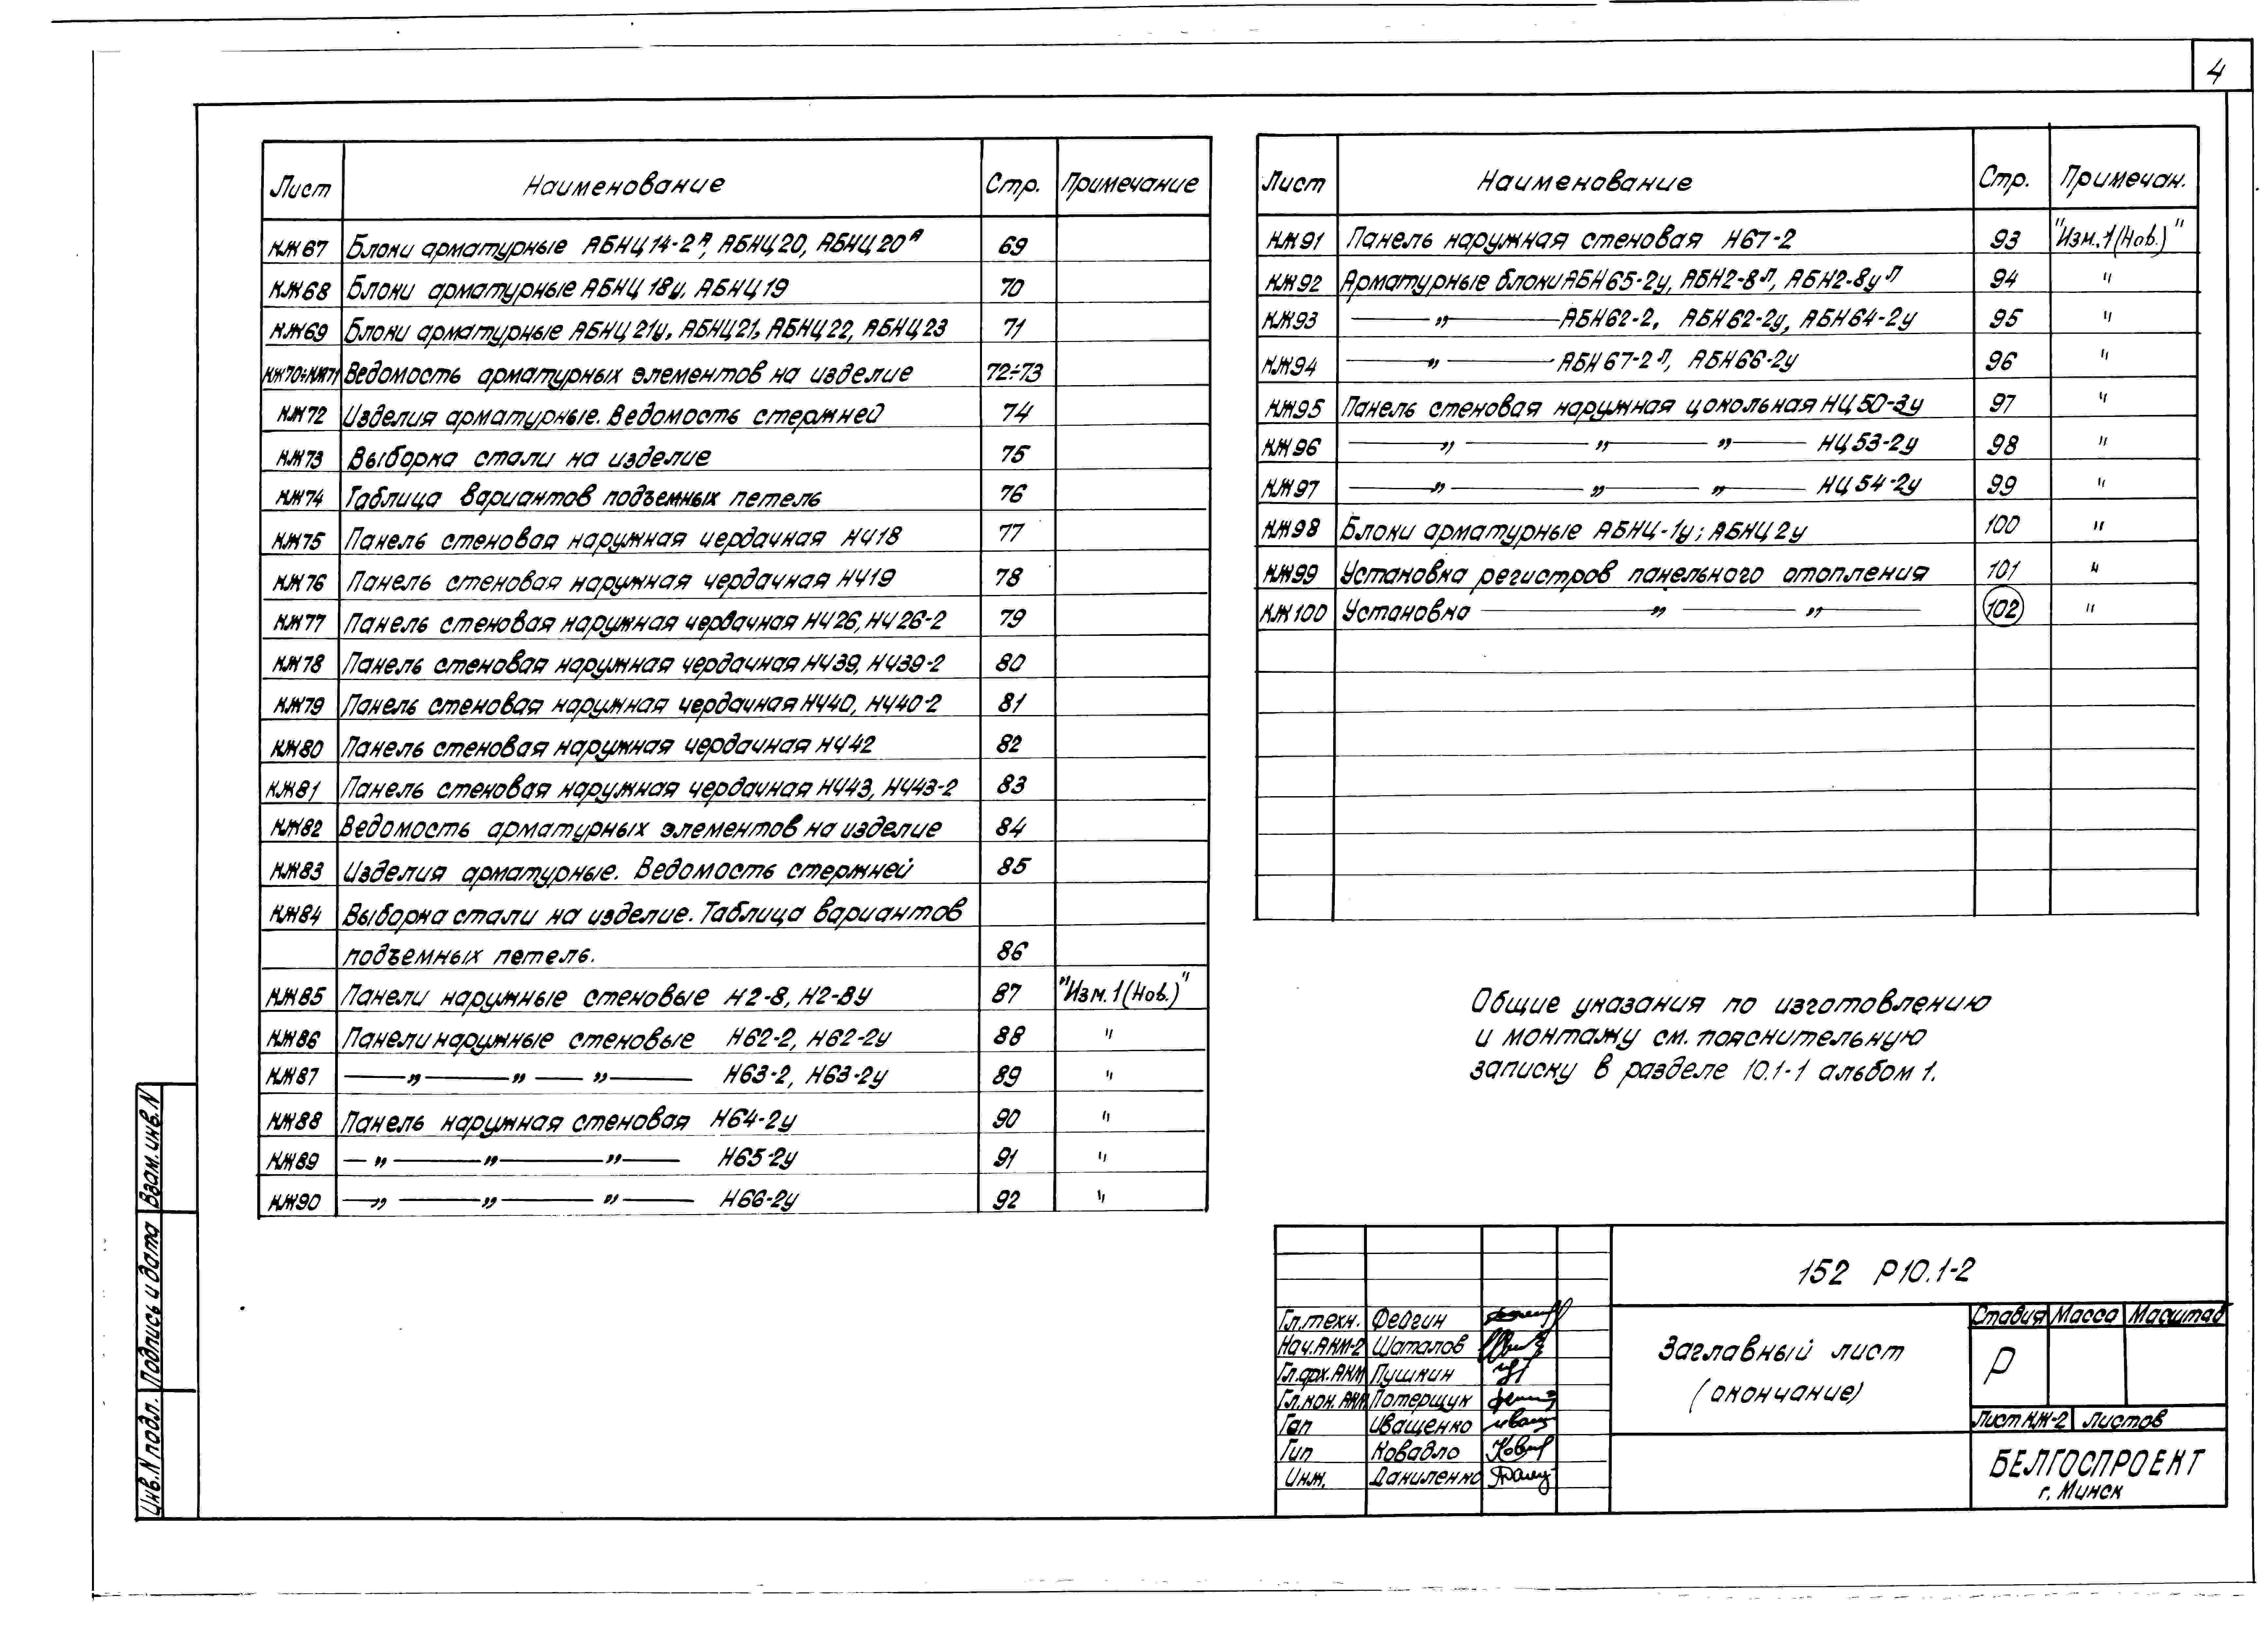 4
Лист Наименование Стр. Примечание
КЖ67 Блоки арматурные АБНЦ14-2ᴬ, АБНЦ20, АБНЦ20ᴬ 69
КЖ68 Блоки арматурные АБНЦ18у, АБНЦ19 70
КЖ69 Блоки арматурные АБНЦ21у, АБНЦ21, АБНЦ22, АБНЦ23 71
КЖ70÷КЖ71 Ведомость арматурных элементов на изделие 72÷73
КЖ72 Изделия арматурные. Ведомость стержней 74
КЖ73 Выборка стали на изделие 75
КЖ74 Таблица вариантов подъемных петель 76
КЖ75 Панель стеновая наружная чердачная НЧ18 77
КЖ76 Панель стеновая наружная чердачная НЧ19 78
КЖ77 Панель стеновая наружная чердачная НЧ26, НЧ26-2 79
КЖ78 Панель стеновая наружная чердачная НЧ39, НЧ39-2 80
КЖ79 Панель стеновая наружная чердачная НЧ40, НЧ40-2 81
КЖ80 Панель стеновая наружная чердачная НЧ42 82
КЖ81 Панель стеновая наружная чердачная НЧ43, НЧ43-2 83
КЖ82 Ведомость арматурных элементов на изделие 84
КЖ83 Изделия арматурные. Ведомость стержней 85
КЖ84 Выборка стали на изделие. Таблица вариантов
подъемных петель. 86
КЖ85 Панели наружные стеновые Н2-8, Н2-8у 87 "Изм.1(Нов.)"
КЖ86 Панели наружные стеновые Н62-2, Н62-2у 88 "
КЖ87 — " — " — " — Н63-2, Н63-2у 89 "
КЖ88 Панель наружная стеновая Н64-2у 90 "
КЖ89 — " — " — " — Н65-2у 91 "
КЖ90 — " — " — " — Н66-2у 92 "
Лист Наименование Стр. Примечан.
КЖ91 Панель наружная стеновая Н67-2 93 "Изм.1(Нов.)"
КЖ92 Арматурные блоки АБН65-2у, АБН2-8ᴫ, АБН2-8уᴫ 94 "
КЖ93 — " — АБН62-2, АБН62-2у, АБН64-2у 95 "
КЖ94 — " — АБН67-2ᴫ, АБН66-2у 96 "
КЖ95 Панель стеновая наружная цокольная НЦ50-3у 97 "
КЖ96 — " — " — " — НЦ53-2у 98 "
КЖ97 — " — " — " — НЦ54-2у 99 "
КЖ98 Блоки арматурные АБНЦ-1у; АБНЦ2у 100 "
КЖ99 Установка регистров панельного отопления 101 "
КЖ100 Установка — " — " — 102 "
Общие указания по изготовлению
и монтажу см. пояснительную
записку в разделе 10.1-1 альбом 1.
Взам. инв. N
Подпись и дата
Инв. N подл.
152 Р10.1-2
Гл.техн. Фейгин
Нач.АКМ-2 Шаталов
Гл.арх.АКМ Пушкин
Гл.кон.АКМ Потерщук
Гап Иващенко
Гип Ковадло
Инж. Даниленко
Заглавный лист
(окончание)
Стадия Масса Масштаб
Р
Лист КЖ-2 Листов
БЕЛГОСПРОЕКТ
г. Минск